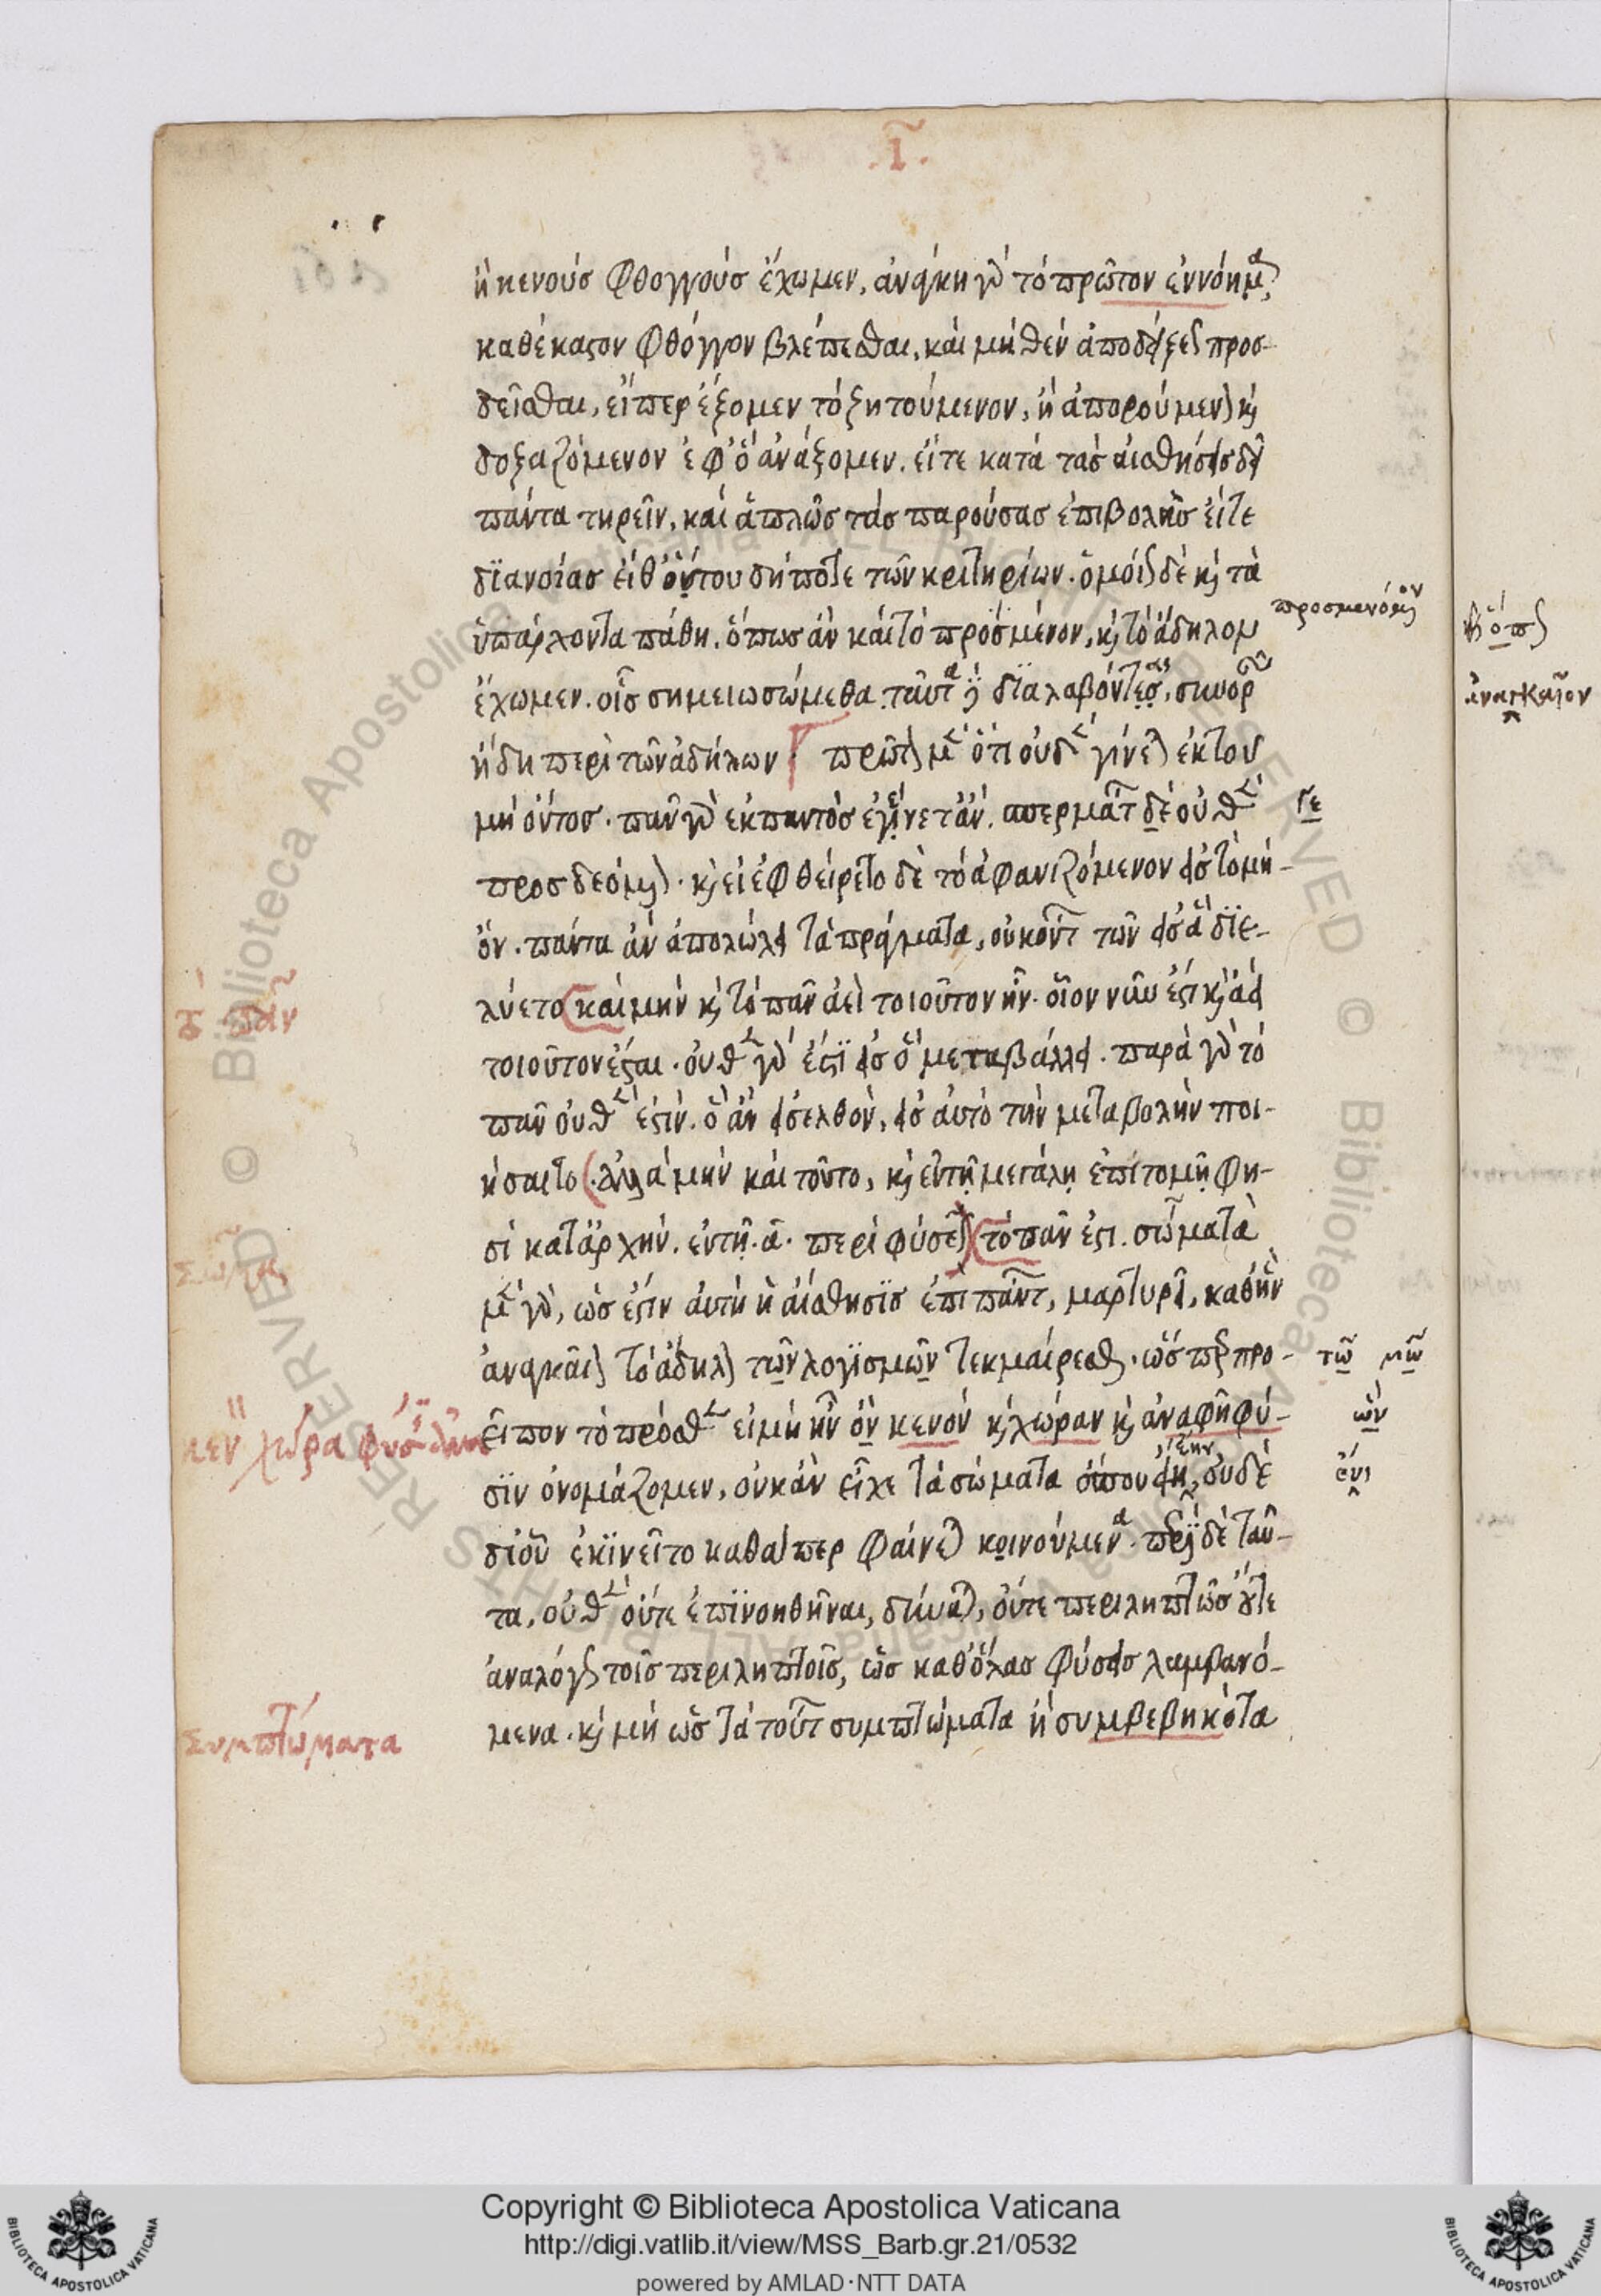 .ῑ.
ἢ κενοὺσ φθόγγουσ ἔχωμεν. ἀνάγκη γὰρ τὸ πρῶτον ἐννόημα
καθ' ἕκαστον φθόγγον βλέπεσθαι, καὶ μηθὲν ἀποδείξεωσ προσ-
δεῖσθαι, εἴπερ ἕξομεν τὸ ζητούμενον, ἢ ἀπορούμενον καὶ
δοξαζόμενον ἐφ' ὃ ἀνάξομεν. εἴτε κατὰ τὰσ αἰσθήσεισ δεῖ
πάντα τηρεῖν, καὶ ἁπλῶσ τὰσ παρούσασ ἐπιβολὰσ εἴτε
διανοίασ εἴθ' ὅτου δήποτε τῶν κριτηρίων. ὁμοίωσ δὲ καὶ τὰ
ὑπάρχοντα πάθη. ὅπωσ ἂν καὶ τὸ προσμένον, καὶ τὸ ἄδηλον
προσμενόμενον
ἔχωμεν. οἷσ σημειωσώμεθα. ταῦτα δεῖ διαλαβόντασ, συνορᾶν
ἤδη περὶ τῶν ἀδήλων. πρῶτον μὲν ὅτι οὐδὲν γίνεται ἐκ τοῦ
μὴ ὄντοσ. πᾶν γὰρ ἐκ παντὸσ ἐγίνετ' ἄν. σπερμάτων δὲ οὐθὲν
γε
προσδεόμενον. καὶ εἰ ἐφθείρετο δὲ τὸ ἀφανιζόμενον εἰσ τὸ μὴ-
ὄν. πάντα ἂν ἀπολώλει τὰ πράγματα, οὐκ ὄντων τῶν εἰσ ἃ διε-
λύετο καὶ μὴν καὶ τὸ πᾶν ἀεὶ τοιοῦτον ἦν. οἷον νῦν ἐστι καὶ ἀεὶ
τὸ πᾶν
τοιοῦτον ἔσται. οὐθὲν γάρ ἐστι εἰσ ὃ μεταβάλλει. παρὰ γὰρ τὸ
πᾶν οὐθέν ἐστιν. ὃ ἂν εἰσελθὸν, εἰσ αὐτὸ τὴν μεταβολὴν ποι-
ήσαιτο. ἀλλὰ μὴν καὶ τοῦτο, καὶ ἐν τῇ μεγάλῃ ἐπιτομῇ φη-
σὶ κατ' ἀρχὴν. ἐν τῇ .α. περὶ φύσεωσ τὸ πᾶν ἐστι. σώματα
σῶμα
μὲν γὰρ, ὡσ ἔστιν αὐτὴ ἡ αἴσθησισ ἐπὶ πάντων, μαρτυρεῖ, καθ' ἣν
ἀναγκαῖον τὸ ἄδηλον τῶν λογισμῶν τεκμαίρεσθαι. ὥσπερ προ-
τῷ μῷ
εῖπον τὸ πρόσθεν εἰ μὴ ἦν ὃν κενὸν καὶ χώραν καὶ ἀναφῆ φύ-
κενὸν χώρα φύσις ἀναφὴς
ὧν
σιν ὀνομάζομεν, οὐκ ἂν εἶχε τὰ σώματα ὅπου εἴη, οὐδὲ
ἔνι
δι' οὗ ἐκινεῖτο καθάπερ φαίνεται κοινούμενα. παρὰ δὲ ταῦ-
τα, οὐθὲν οὔτε ἐπινοηθῆναι, δύναται, οὔτε περιληπτῶσ οὔτε
ἀναλόγωσ τοῖσ περιληπτοῖσ, ὡσ καθ' ὅλασ φύσεισ λαμβανό-
μενα. καὶ μὴ ὡσ τὰ τούτων συμπτώματα ἢ συμβεβηκότα
συμπτώματα
ἀναγκαῖον
Copyright © Biblioteca Apostolica Vaticana
http://digi.vatlib.it/view/MSS_Barb.gr.21/0532
powered by AMLAD·NTT DATA